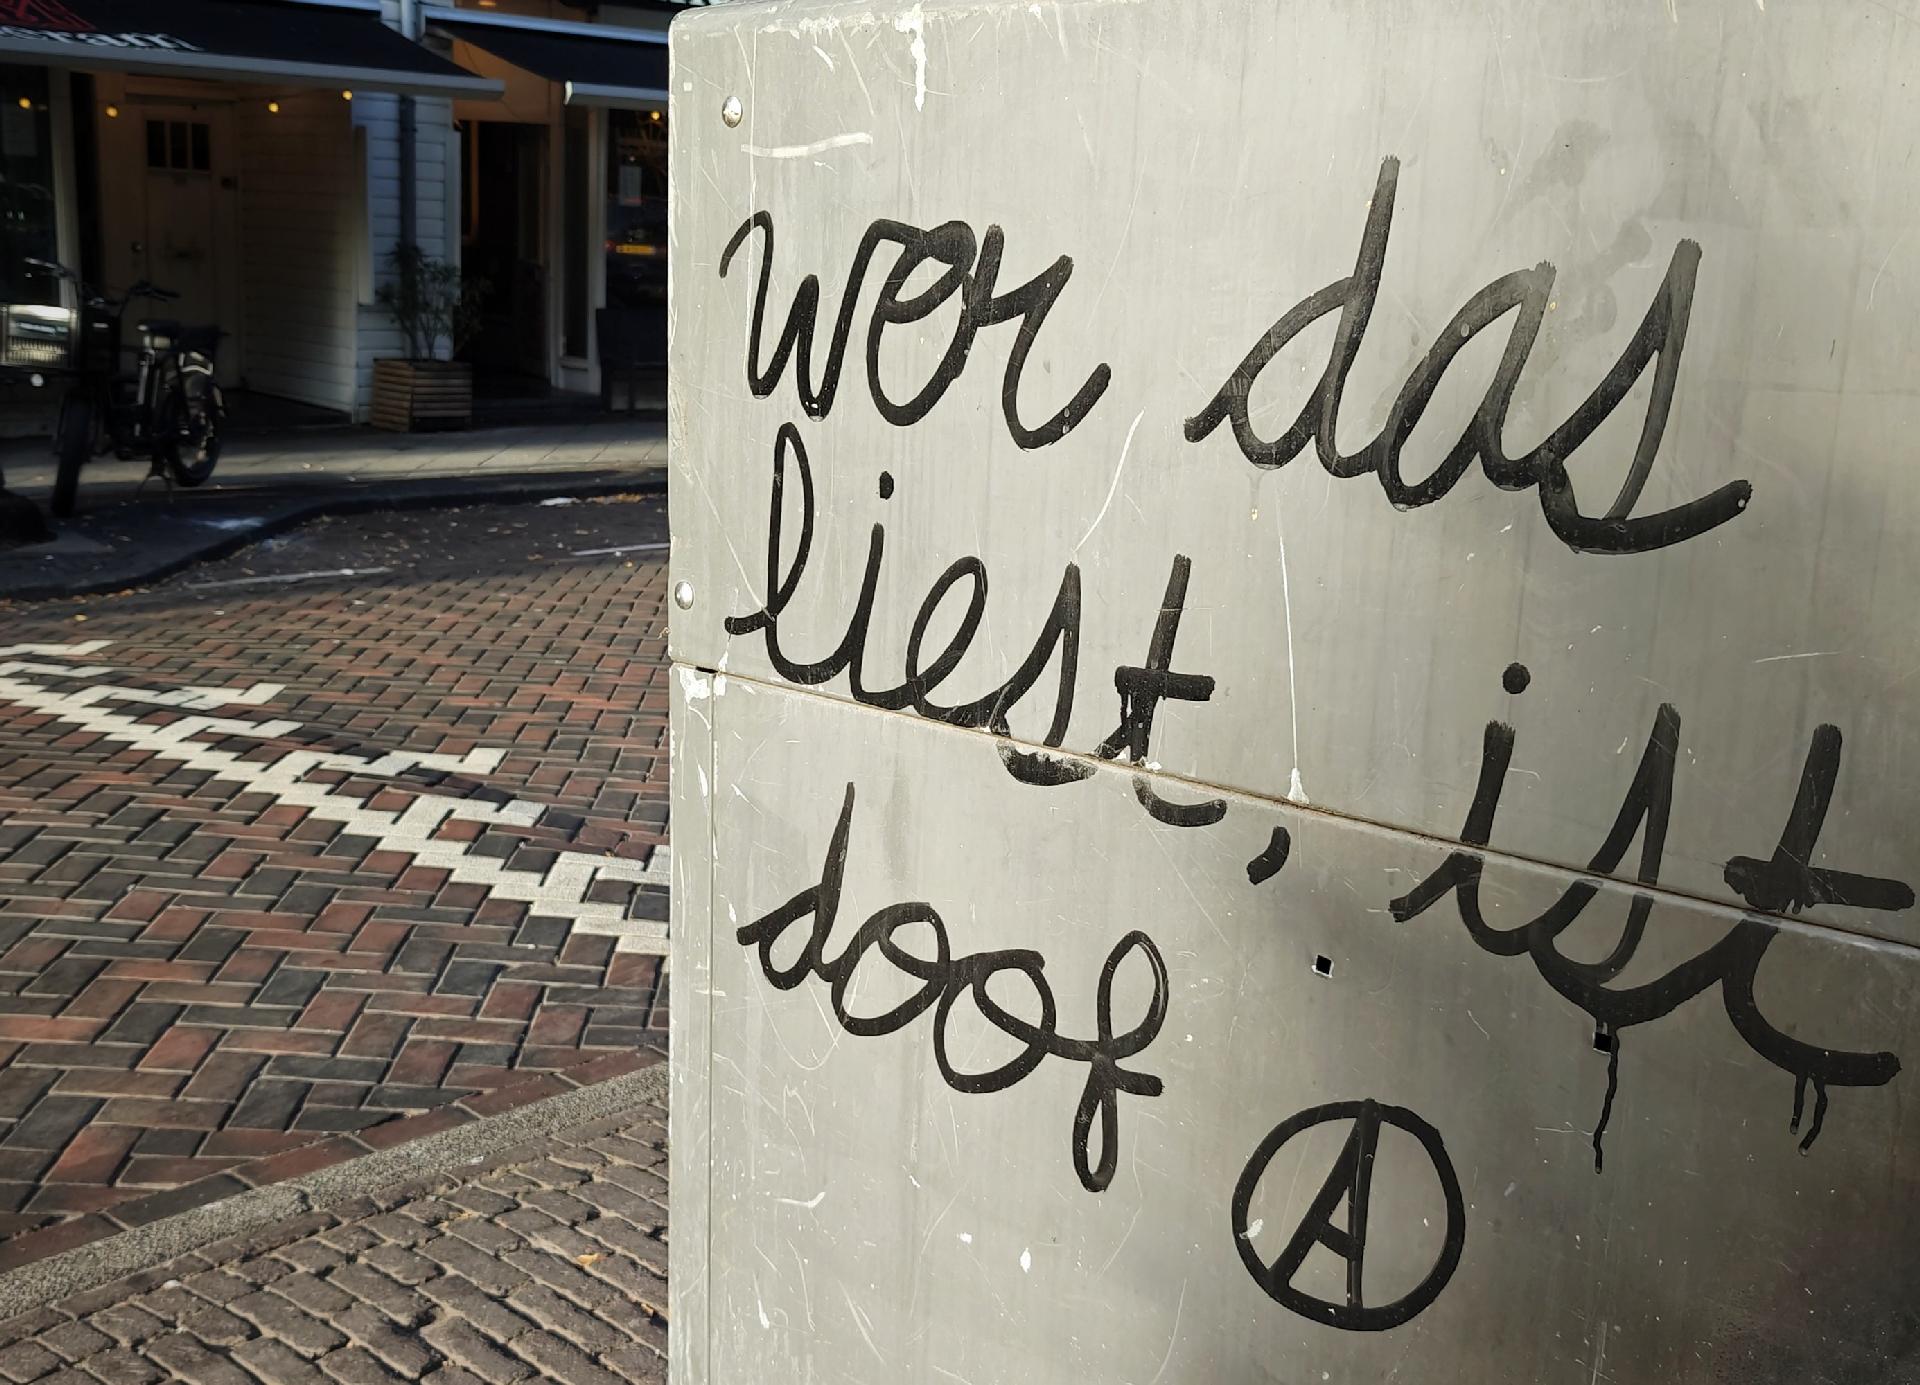 wer das
liest, ist
doof